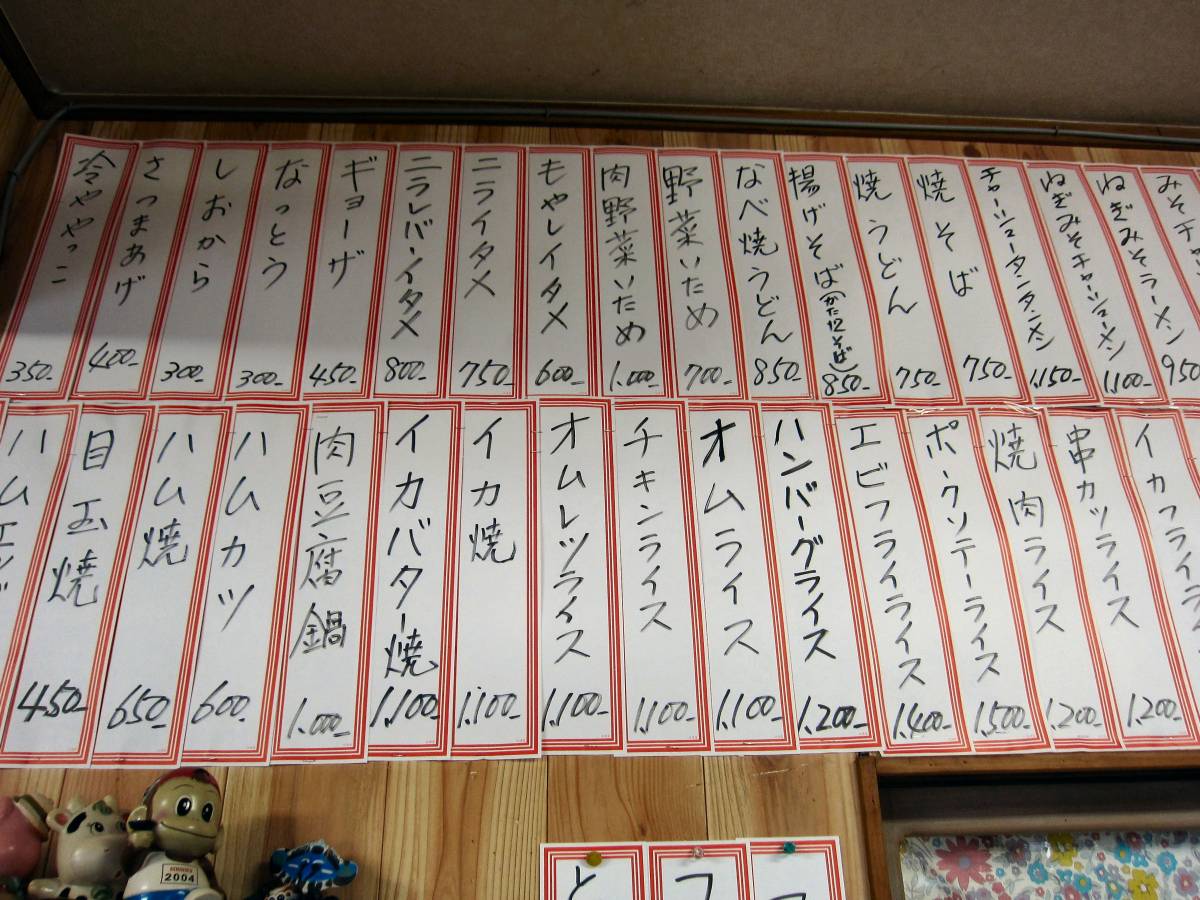 みそチャ
950
ねぎみそラーメン
1,100-
ねぎみそチャーシューメン
1,150-
チャーシュータンタンメン
750-
焼そば
750-
焼うどん
850-
揚げそば(かた12そば)
850-
なべ焼うどん
700-
野菜いため
1,000-
肉野菜いため
600-
もやしイタメ
750-
ニライタメ
800-
ニラレバーイタメ
450-
ギョーザ
300-
なっとう
300-
しおから
400-
さつまあげ
350-
冷ややっこ
イカフライラ
1,200-
串カツライス
1,200-
焼肉ライス
1,500-
ポークソテーライス
1,400-
エビフライライス
1,200-
ハンバーグライス
1,100-
オムライス
1,100-
チキンライス
1,100-
オムレツライス
1,100-
イカ焼
1,100-
イカバター焼
1,000-
肉豆腐鍋
600-
ハムカツ
650-
ハム焼
450-
目玉焼
ハムエッグ
と
フ
2004